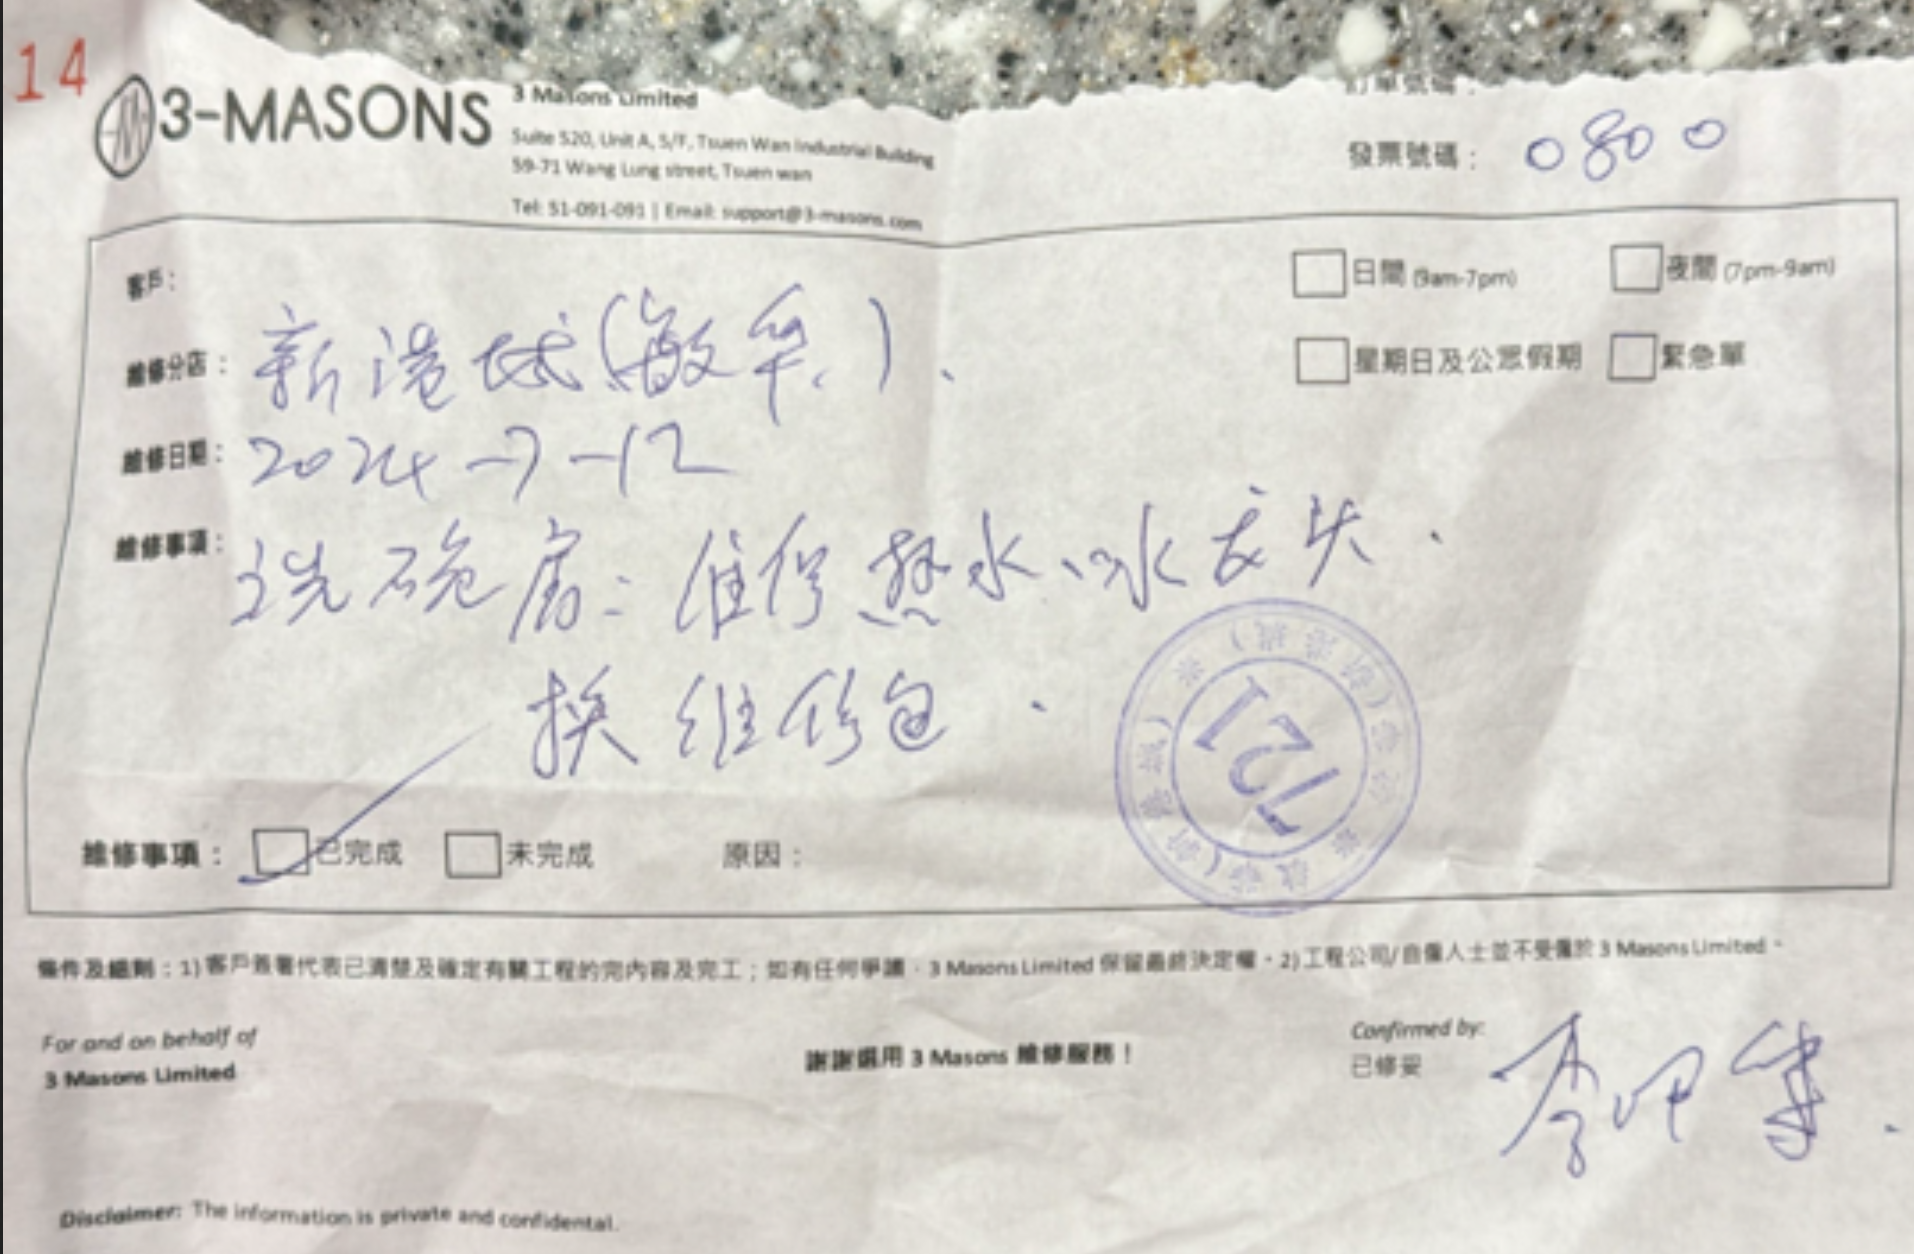 14
3-MASONS
3 Masons Limited
Suite 520, Unit A, 5/F, Tsuen Wan Industrial Building
59-71 Wang Lung street, Tsuen wan
Tel: 51-091-091 | Email: support@3-masons.com
訂單號碼：
發票號碼： 0800
客戶：
日間 (9am-7pm) 夜間 (7pm-9am)
維修分店： 新港城(敬華).
星期日及公眾假期 緊急單
維修日期： 2024-7-12
維修事項： 洗碗房：维修热水、冰水龙头.
換维修包.
121
維修事項： 已完成 未完成 原因：
條件及細則：1) 客戶簽署代表已清楚及確定有關工程的完內容及完工；如有任何爭議，3 Masons Limited 保留最終決定權。2) 工程公司/自僱人士並不受僱於 3 Masons Limited。
For and on behalf of
3 Masons Limited
謝謝選用 3 Masons 維修服務！
Confirmed by:
已修妥
Disclaimer: The information is private and confidental.